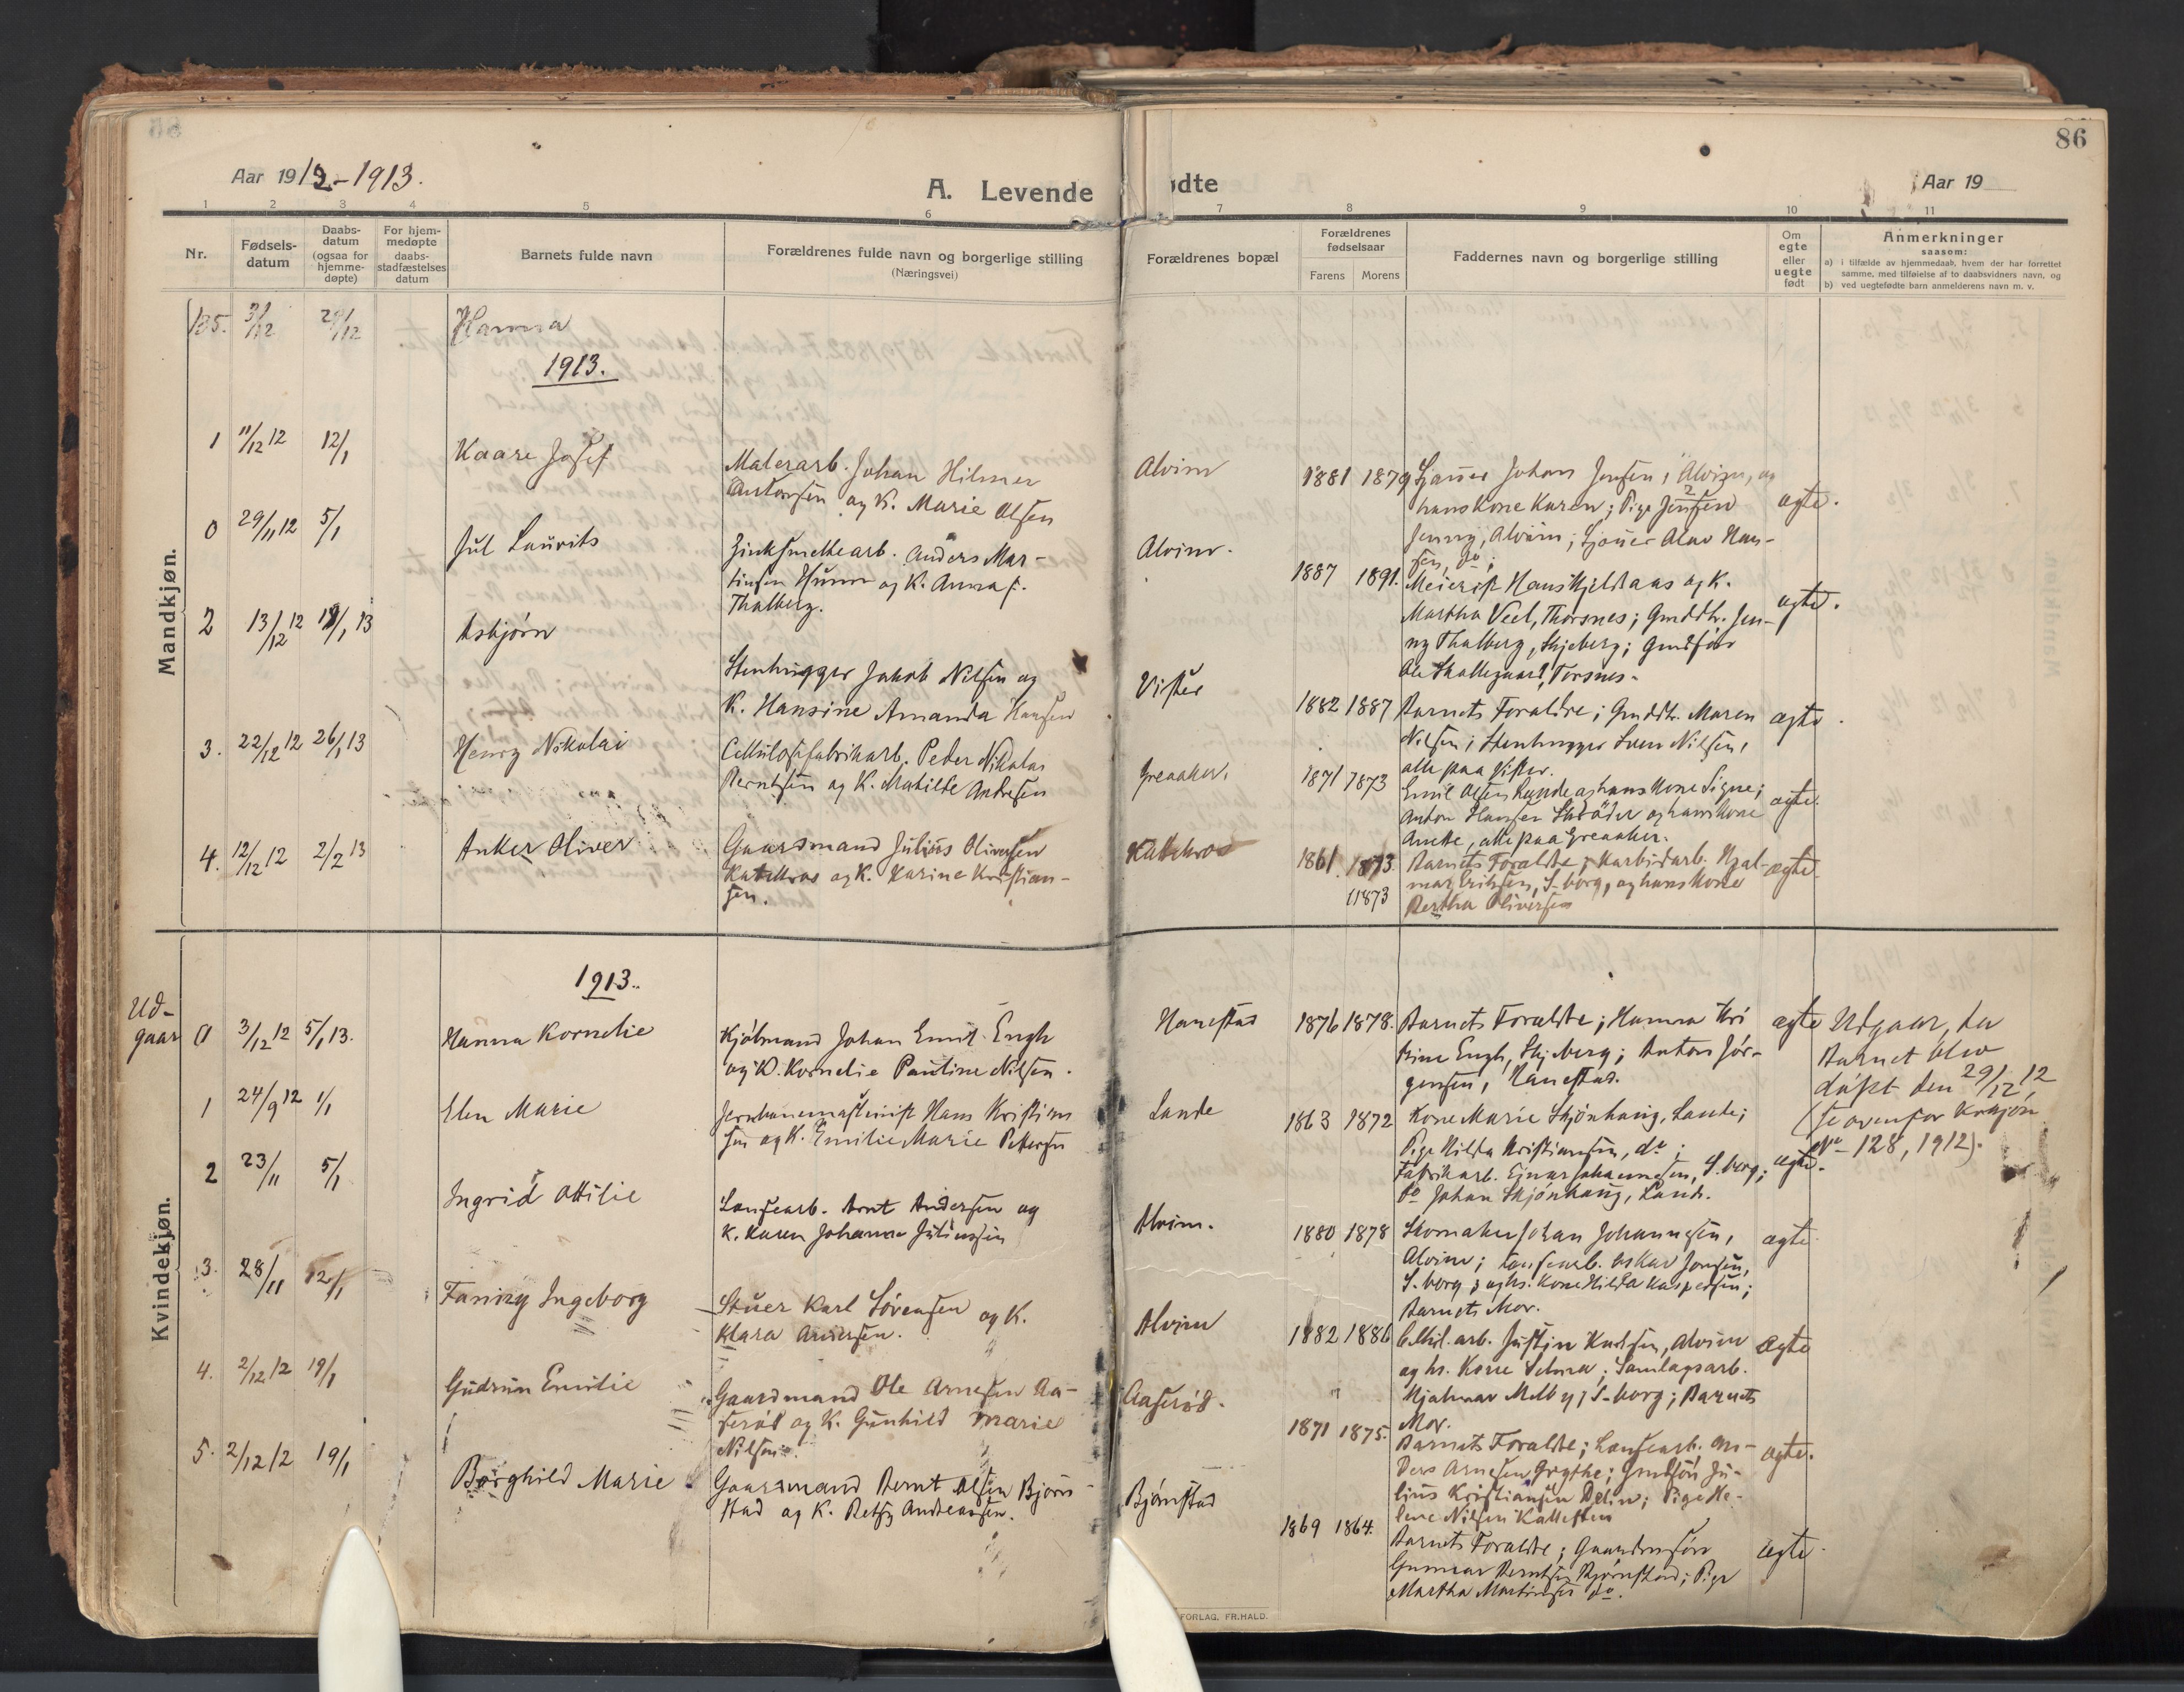 86
Aar 1912-1913.
A. Levende
ødte
Aar 19
1 2 3 4 5 6 7 8 9 10 11
Nr.
Fødsels-
datum
Daabs-
datum
(ogsaa for
hjemme-
døpte)
For hjem-
medøpte
daabs-
stadfæstelses
datum
Barnets fulde navn
Forældrenes fulde navn og borgerlige stilling
(Næringsvei)
Forældrenes bopæl
Forældrenes
fødselsaar
Farens Morens
Faddernes navn og borgerlige stilling
Om
egte
eller
uegte
født
Anmerkninger
saasom:
a) i tilfælde av hjemmedaab, hvem der har forrettet
samme, med tilføielse af to daabsvidners navn, og
b) ved uegtefødte barn anmelderens navn m. v.
Mandkjøn.
135. 3/12 29/12 Hanna
1913.
1 11/12 12 12/1 Kaare Josef
Malerarb. Johan Hilmer
Antonsen og K. Marie Olsen
Alvim 1881 1879
Sjauer Johan Jensen, Alvim, og
hans Kone Karen; Pige Jensen
Jenny, Alvim; Sjauer Olav Han-
sen, do;
ægte.
0 29/11 12 5/1 Jul Laurits
Zinksmeltearb. Anders Mar-
tinsen Hunn og K. Anna f.
Thalberg.
Alvim. 1887 1891.
Meierist Hans Kjeldaas og K.
Martha Veel, Thorsnes; Grddtr. Jen-
ny Thalberg, Skjeberg; Grdsøn
Ole Skallegaard, Torsnes.
ægte.
2 13/12 12 19/1 13 Asbjørn
Stenhugger Jakob Nilsen og
K. Hansine Amanda Hansen
Vister 1882 1887
Barnets Forældre; Grddtr. Maren
Nilsen; Stenhugger Sven Nilsen,
alle paa Vister.
ægte.
3. 22/12 12 26/1 13 Henry Nikolai
Cellulosefabrikarb. Peder Nikolai
Berntsen og K. Matilde Andresen
Greaaker. 1871 1873
Emil Olsen Lunde og hans Kone Signe;
Anton Hansen Skrøder og hans Kone
Anette, alle paa Greaaker.
ægte.
4. 12/12 12 2/2 13 Anker Oliver
Gaardmand Julius Oliversen
Katekros og K. Karine Kristian-
sen.
Katekros 1861. 1873
1873
Barnets Forældre; Karbidarb. Hjal-
mar Eriksen, S-borg, og hans Kone
Bertha Oliversen
ægte.
Kvindekjøn.
1913.
Ud-
gaar 0 3/12 12 5/1 13. Hanna Kornelie
Kjøbmand Johan Emil Engh
og K. Kornelie Pauline Nilsen.
Hanestad 1876 1878.
Barnets Forældre; Hanna Kri
stine Engh, Skjeberg; Anton Jør-
gensen, Hanestad.
ægte
Udgaar, da
Barnet blev
døpt den 29/12 12,
(se ovenfor Kvkjøn
No - 128, 1912).
1 24/9 12 1/1 Elen Marie
Jernbanemaskinist Hans Kristian
sen og K. Emilie Marie Pettersen
Lande 1863 1872
Kone Marie Skjønhaug, Lande;
Pige Hilda Kristiansen, do;
Fabrikarb. Einar Johannesen, S.borg;
do Johan Skjønhaug, Lande.
ægte.
2 23/11 5/1 Ingrid Ottilie
Landsearb. Arnt Andersen og
K. Karen Johanne Juliussen
Alvim. 1880 1878
Skomaker Johan Johannesen,
Alvim; Landsearb. Oskar Jensen,
S-borg; og hs. Kone Hilda Kaspersen;
Barnets Mor.
ægte
3. 28/11 12/1 Fanny Ingeborg
Stuer Karl Sørensen og K.
Klara Andersen.
Alvim 1882 1886
Cellul.arb. Justin Knudsen, Alvim
og hs. Kone Selma; Samlagsarb.
Hjalmar Melby, S-borg; Barnets
Mor.
ægte
4. 2/12 12 19/1 Gudrun Emilie
Gaardmand Ole Arnesen Aa-
serød og K. Gunhild Marie
Nilsen.
Aaserød. 1871 1875.
Barnets Forældre; Landsearb. An-
ders Arnesen Grythe; Grdsøn Ju-
lius Kristiansen Delin; Pige He-
lene Nilsen Kallesten
ægte.
5. 2/12 12 19/1 Borghild Marie
Gaardmand Bernt Olsen Bjørn-
stad og K. Betsy Andreassen.
Bjørnstad 1869 1864.
Barnets Forældre; Gaardmsøn
Gunnar Berntsen Bjørnstad; Pige
Martha Martinsen do.
ægte.
FORLAG, FR.HALD.